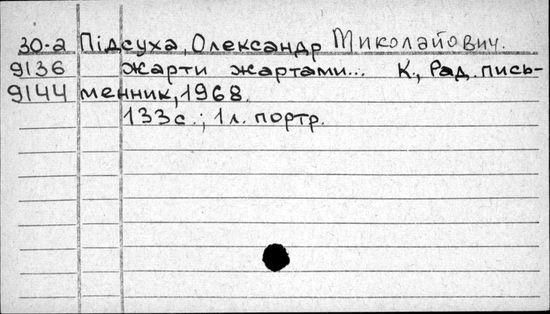 30-а Підсуха, Олександр Миколайович.
9136 Жарти жартами... К., Рад. пись-
9144 менник, 1968.
133с.; 1л. портр.